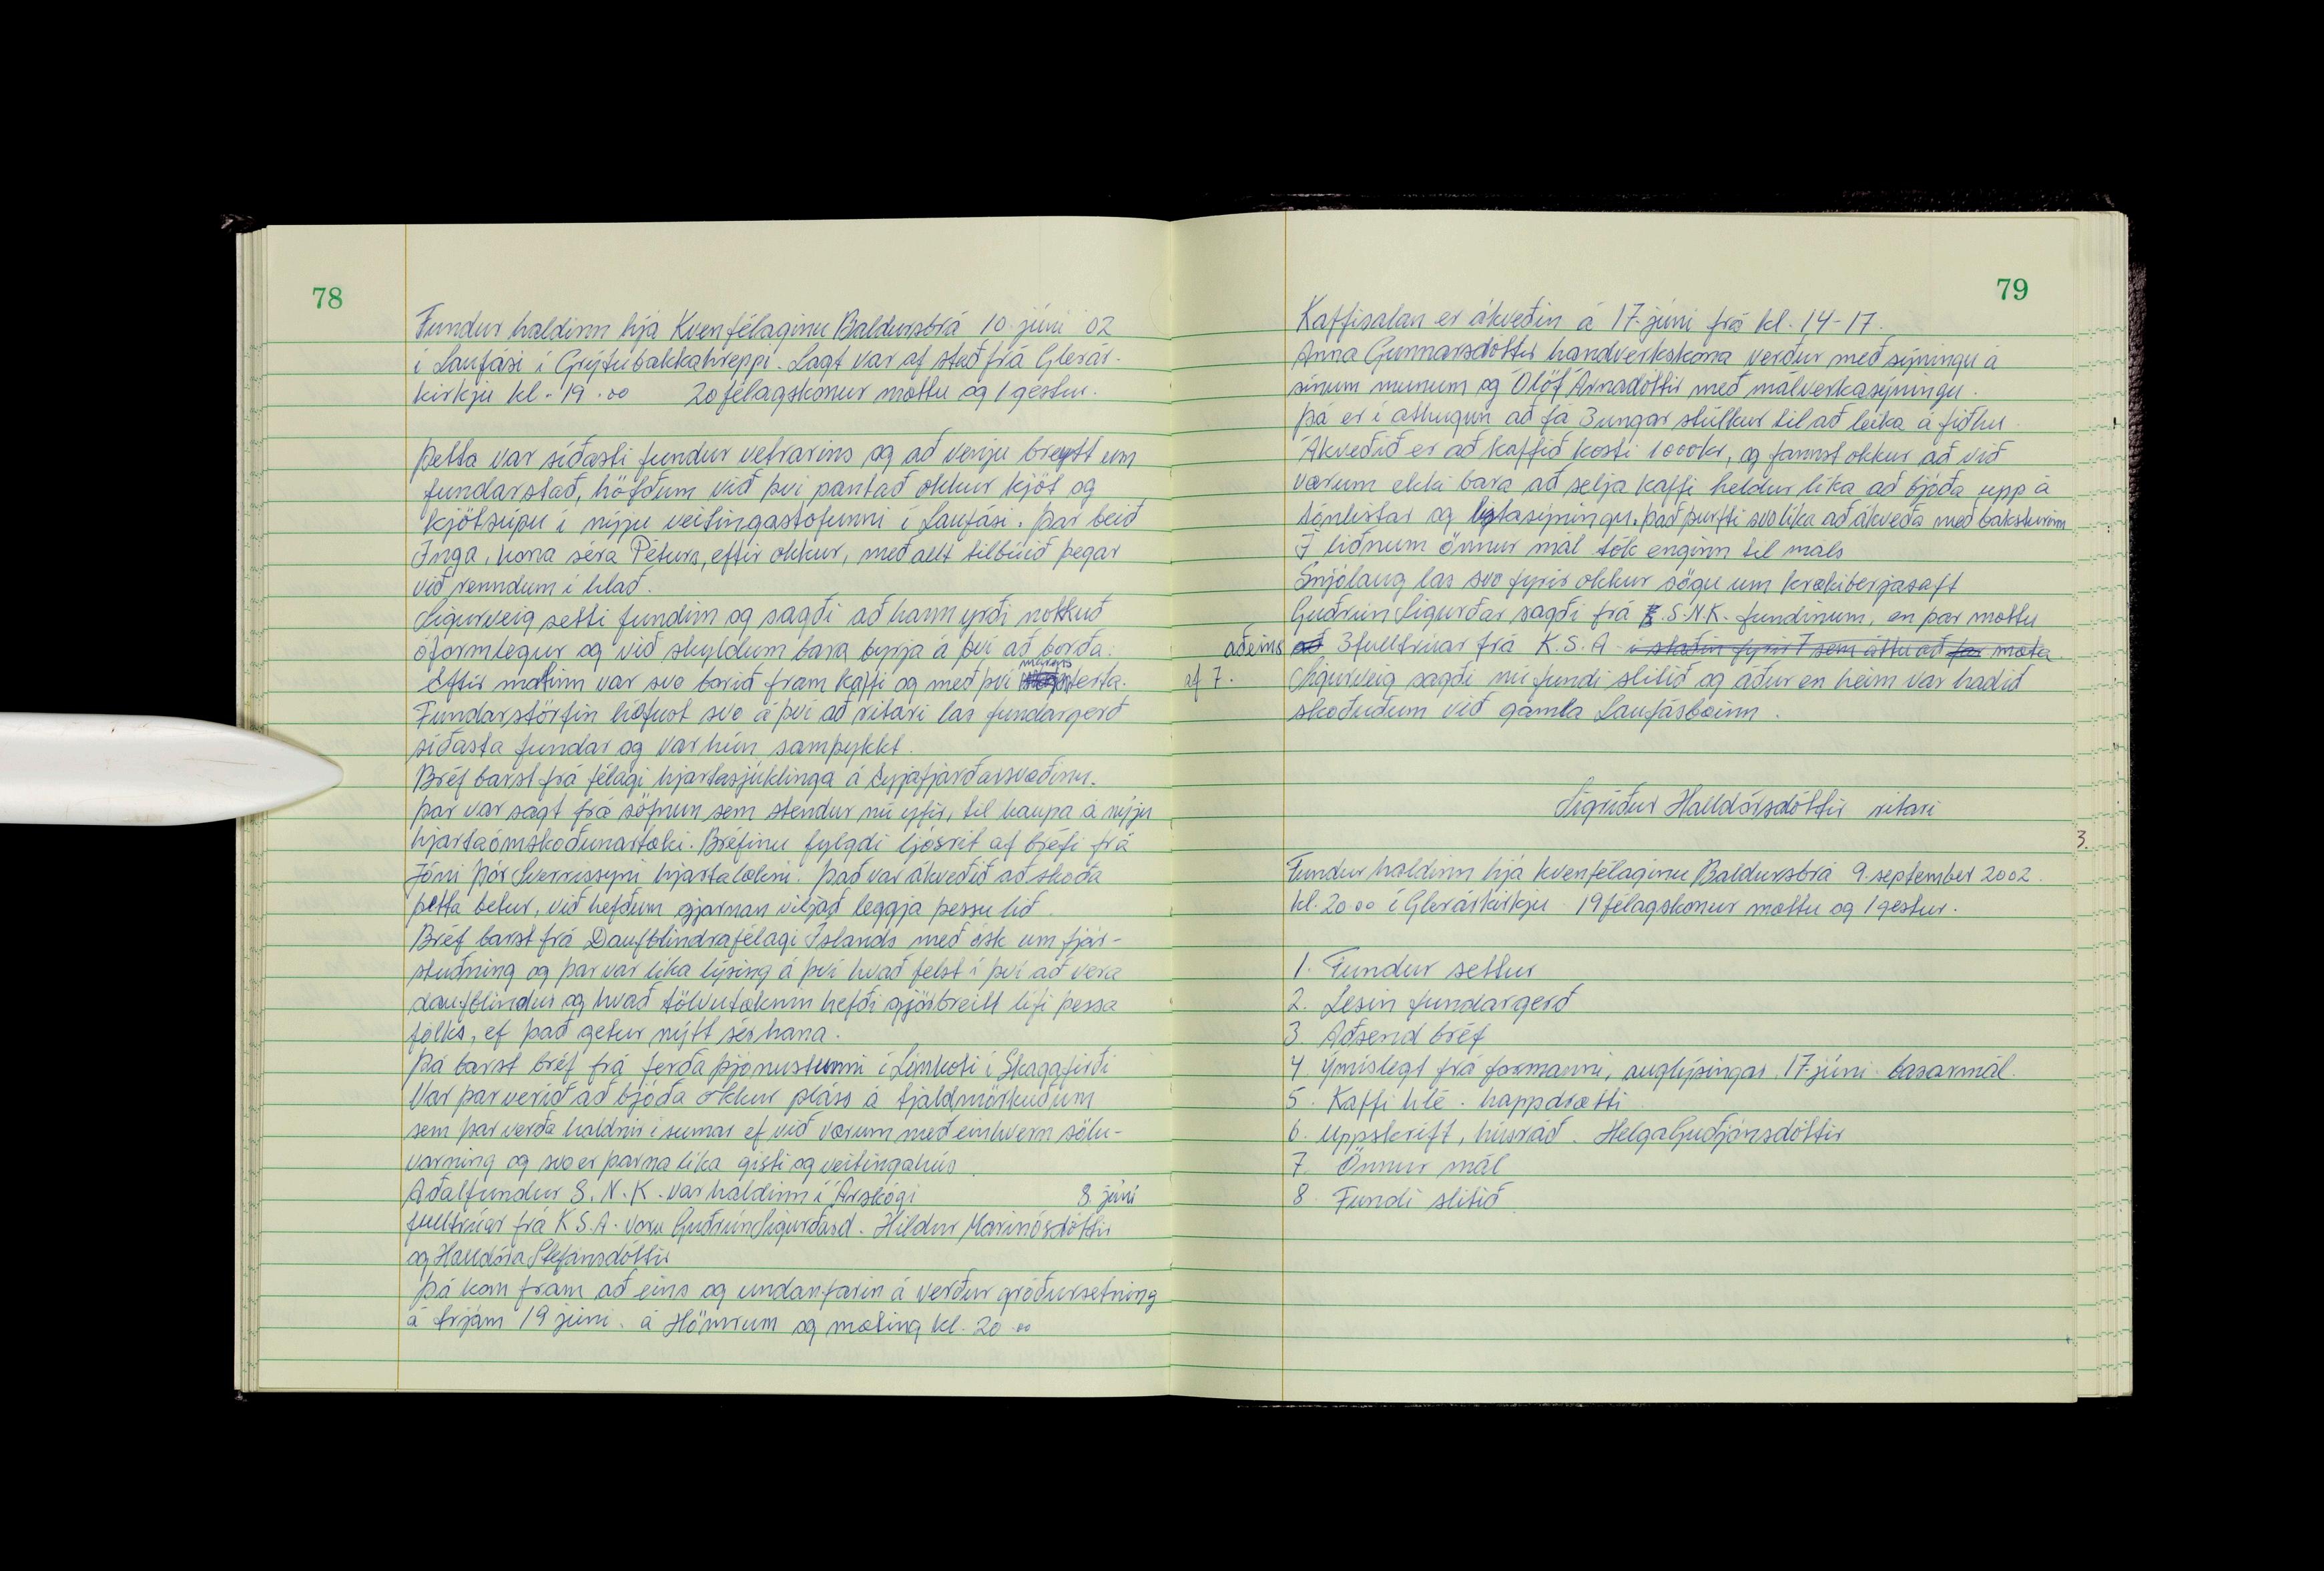 78
Fundur haldinn hjá Kvenfélaginu Baldursbrá 10. júni '02
í Laufási í Grýtubakkahreppi. Lagt var af stað frá Glerár-
kirkju kl. 19.00 20 félagskonur mættu og 1 gestur.
Þetta var síðasti fundur vetrarins og að venju breytt um
fundarstað, höfðum við því pantað okkur kjöt og
kjötsúpu í nýju veitingastofunni í Laufási. Þar beið
Inga, kona séra Péturs, eftir okkur, með allt tilbúið þegar
við renndum í hlað.
Sigurveig setti fundinn og sagði að hann yrði nokkuð
óformlegur og við skyldum bara byrja á því að borða.
Eftir matinn var svo borið fram kaffi og með því marens terta.
Fundarstörfin hófust svo á því að ritari las fundargerð
síðasta fundar og var hún samþykkt.
Bréf barst frá félagi hjartasjúklinga á Eyjafjarðarsvæðinu.
Þar var sagt frá söfnun sem stendur nú yfir, til kaupa á nýju
hjartaómskoðunartæki. Bréfinu fylgdi ljósrit af bréfi frá
Jóni Þór Sverrissyni hjartalækni. Það var ákveðið að skoða
þetta betur, við hefðum gjarnan viljað leggja þessu lið.
Bréf barst frá Daufblindrafélagi Íslands með ósk um fjár-
stuðning og þar var líka lýsing á því hvað felst í því að vera
daufblindur og hvað tölvutæknin hefði gjörbreitt lífi þessa
fólks, ef það getur nýtt sér hana.
Þá barst bréf frá ferða þjónustunni í Lónkoti í Skagafirði
Var þar verið að bjóða okkur pláss á tjaldmörkuðum
sem þar verða haldnir í sumar ef við værum með einhvern sölu-
varning og svo er þarna líka gisti og veitingahús.
Aðalfundur S.N.K. var haldinn í Árskógi 8. júni
fulltrúar frá K.S.A. voru Guðrún Sigurðard. Hildur Marinósdóttir
og Halldóra Stefánsdóttir
Þá kom fram að eins og undanfarin á verður gróðursetning
á trjám 19 júni. á Hömrum og mæting kl. 20.00
79
Kaffisalan er ákveðin á 17. júni frá kl. 14-17.
Anna Gunnarsdóttir handverkskona verður með sýningu á
sínum munum og Ólöf Árnadóttir með málverkasýningu.
Þá er í athugun að fá 3 ungar stúlkur til að leika á fiðlu.
Ákveðið er að kaffið kosti 1000 kr, og fannst okkur að við
værum ekki bara að selja kaffi heldur líka að bjóða upp á
tónlistar og listasýningu. Það þurfti svo líka að ákveða með baksturinn
Í liðnum önnur mál tók enginn til máls
Snjólaug las svo fyrir okkur sögu um krækiberjasaft
Guðrún Sigurðar sagði frá S.N.K. fundinum, en þar mættu
aðeins að 3 fulltrúar frá K.S.A. í staðin fyrir 7 sem áttu að fær mæta.
af 7. Sigurveig sagði nú fundi slitið og áður en heim var haldið
skoðuðum við gamla Laufásbæinn.
Sigríður Halldórsdóttir ritari
3.
Fundur haldinn hjá kvenfélaginu Baldursbrá 9. september 2002.
kl. 20 00 í Glerárkirkju 19 félagskonur mættu og 1 gestur.
1. Fundur settur
2. Lesin fundargerð
3. Aðsend bréf
4. Ýmislegt frá formanni, auglýsingar. 17 júni. basarmál.
5. Kaffi hlé. happdrætti.
6. Uppskrift, húsráð. Helga Guðjónsdóttir
7. Önnur mál
8. Fundi slitið